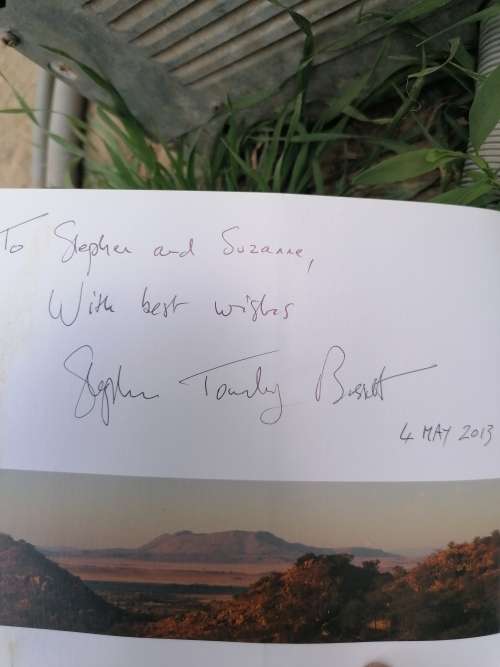 To Stephen and Suzanne,
With best wishes
Stephen Townley Bassett
4 MAY 2013